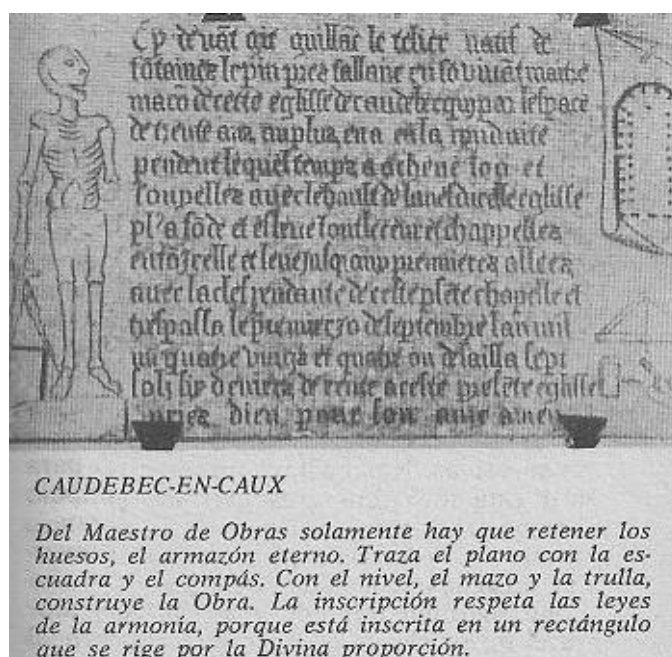 Cy deuãt git guillãe le telier natif de
fõtaines le pin pres fallaise en sõ viuãt maitre
maçõ de ceste eglisse de caudebec quy par lespace
de trente ans ou plus en a eu la conduite
pendent lequel temps a acheue et
soupellez auec le hault de la nef dicelle eglisse
a fõde et esleue tout le ceur et chappelles
icelle et leue jusquaux premieres allees
auec la clef pendante de ceste psẽte chapelle et
trespassa le premier jo de septembre lan mil
quatre vings et quatre ou delaissa sept
solz six deniers de rente a ceste presẽte eglisse
priez dieu pour son ame amen
CAUDEBEC-EN-CAUX
Del Maestro de Obras solamente hay que retener los
huesos, el armazón eterno. Traza el plano con la es-
cuadra y el compás. Con el nivel, el mazo y la trulla,
construye la Obra. La inscripción respeta las leyes
de la armonía, porque está inscrita en un rectángulo
que se rige por la Divina proporción.